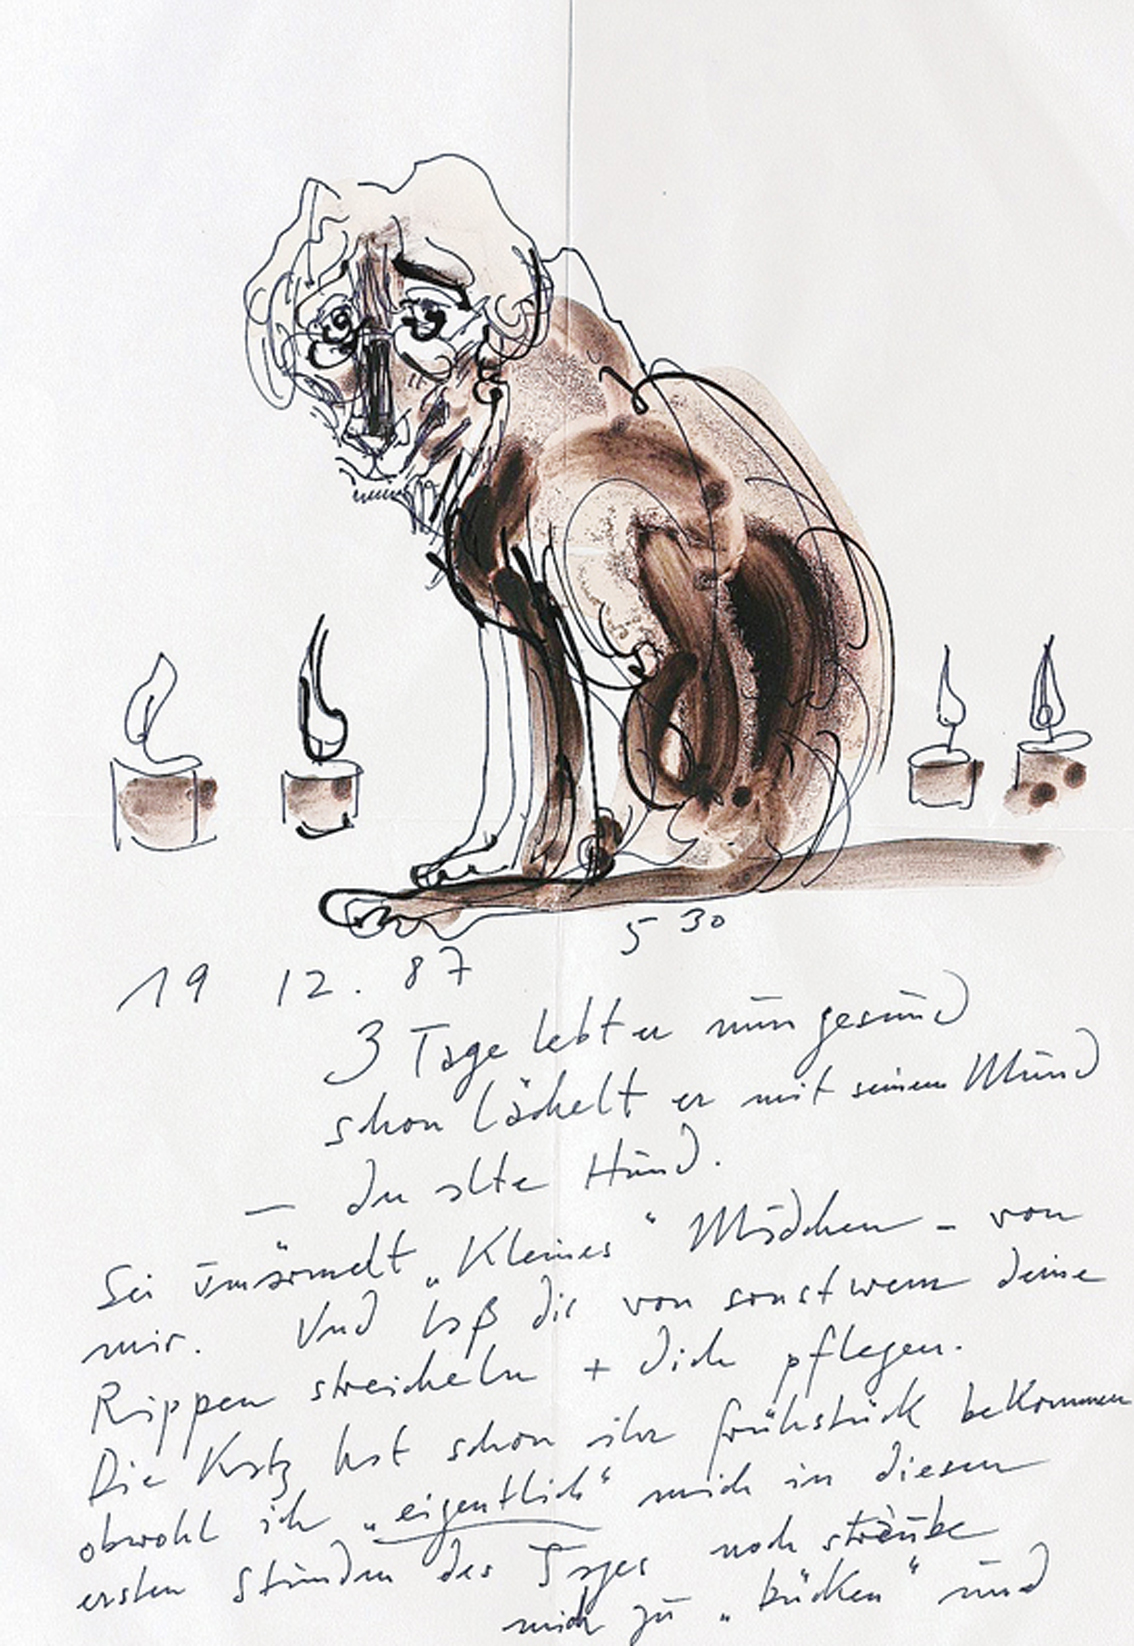 5 30
19 12. 87
3 Tage lebt er nun gesund
schon lächelt er mit seinem Mund
— der alte Hund.
Sei umärmelt „Kleines“ Mädchen – von
mir. Und laß dir von sonstwem deine
Rippen streicheln + dich pflegen.
Die Katz hat schon ihr Frühstück bekommen
obwohl ich „eigentlich“ mich in diesen
ersten Stunden des Tages noch sträube
mich zu „bücken“ und